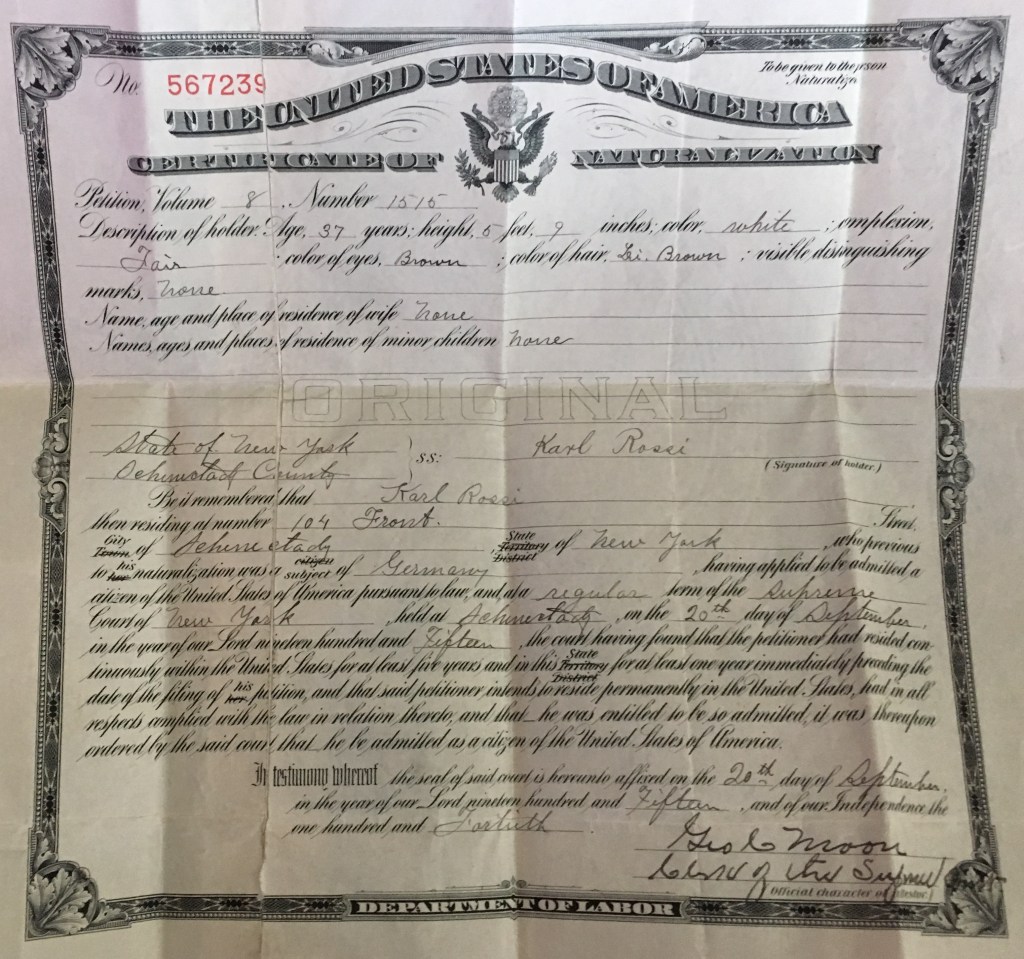 No. 567239
To be given to the person
Naturalize
THE UNITED STATES OF AMERICA
CERTIFICATE OF NATURALIZATION
Petition, Volume 8, Number 1515
Description of holder: Age, 37 years; height, 5 feet, 9 inches; color, white; omplexion,
Fair; color of eyes, Brown; color of hair, Li. Brown; visible distinguishing
marks, None
Name, age and place of residence of wife None
Names, ages and places of residence of minor children None
ORIGINAL
State of New York
Schenectady County
ss:
Karl Rossi
(Signature of holder.)
Be it remembered that Karl Rossi
then residing at number 104 Front. Street,
City Town of Schenectady, State Territory District of New York, who previous
to his her naturalization was a citizen subject of Germany, having applied to be admitted a
citizen of the United States of America pursuant to law, and at a regular term of the Supreme
Court of New York held at Schenectady, on the 20th day of September,
in the year of our Lord nineteen hundred and Fifteen, the court having found that the petitioner had resided con-
tinuously within the United States for at least five years and in this State Territory District for at least one year immediately preceding the
date of the filing of his her petition, and that said petitioner intends to reside permanently in the United States, had in all
respects complied with the law in relation thereto, and that he was entitled to be so admitted, it was thereupon
ordered by the said court that he be admitted as a citizen of the United States of America.
In testimony whereof the seal of said court is hereunto affixed on the 20th day of September,
in the year of our Lord nineteen hundred and Fifteen, and of our Independence the
one hundred and Fortieth
Geo C Moon
Clerk of the Supreme
(Official character of
DEPARTMENT OF LABOR